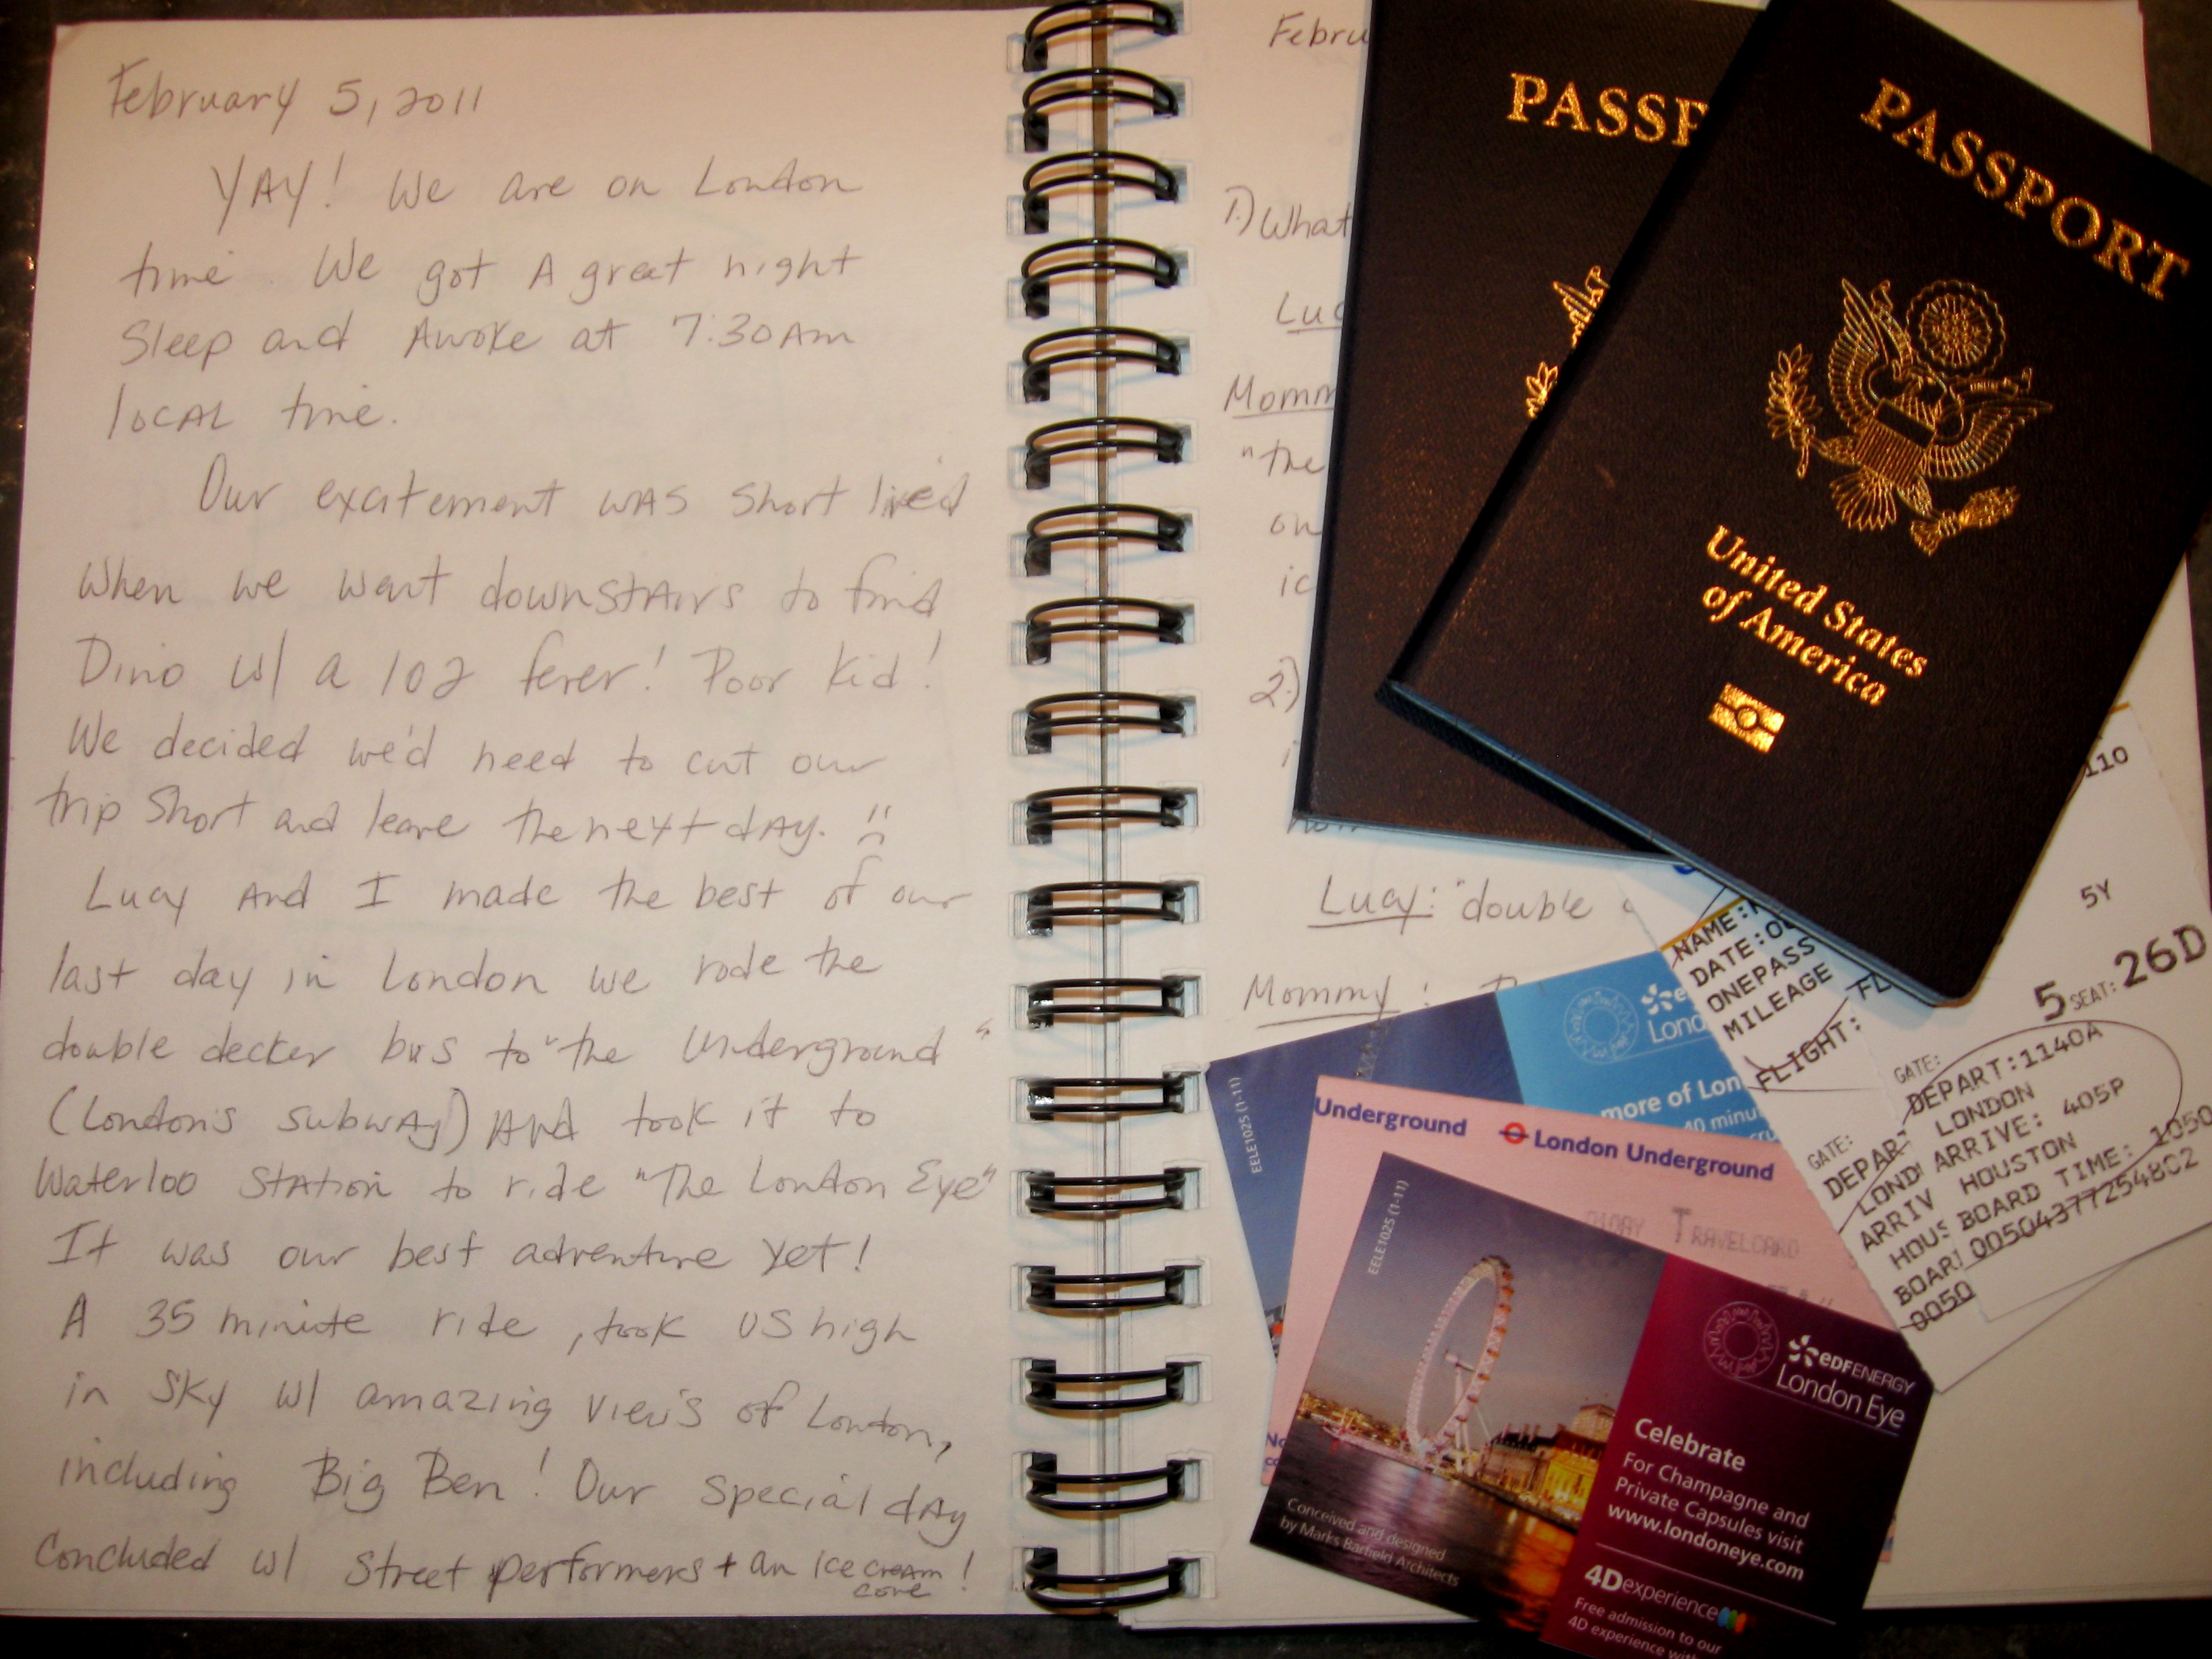 February 5, 2011
YAY! We are on London
time. We got A great night
Sleep and Awoke at 7:30 Am
locAL time.
Our excitement wAS short lived
When we went downstAirs to find
Dino w/ a 102 fever! Poor Kid!
We decided we'd need to cut our
trip Short and leave the next dAy.
Lucy And I made the best of our
last day in London we rode the
double decker bus to "the Underground"
(London's subwAy) And took it to
Waterloo StAtion to ride "The London Eye"
It was our best adventure yet!
A 35 minute ride, took US high
in SKy w/ amazing view's of London,
including Big Ben! Our special dAy
Concluded w/ Street performers + an ice cream
cone!
Febru
1.) What
Luc
Momm
"the
on
ic
2.)
Lucy: "double
Mommy:
PASSP
PASSPORT
United States
of America
110
5Y
5 SEAT: 26D
NAME:
DATE:
ONEPASS
MILEAGE
FLIGHT:
GATE:
DEPART:1140A
LONDON
ARRIVE: 405P
HOUSTON
BOARD TIME: 1050
00504377254802
GATE:
DEPAR
LOND
ARRIV
HOUS
BOAR
0050
EELE1025 (1-11)
Lond
more of Lon
40 minu
cru
Underground London Underground
DAY TRAVELCARD
EELE1025 (1-11)
Conceived and designed
by Marks Barfield Architects
eDFENERGY
London Eye
Celebrate
For Champagne and
Private Capsules visit
www.londoneye.com
4Dexperience
Free admission to our
4D experience with